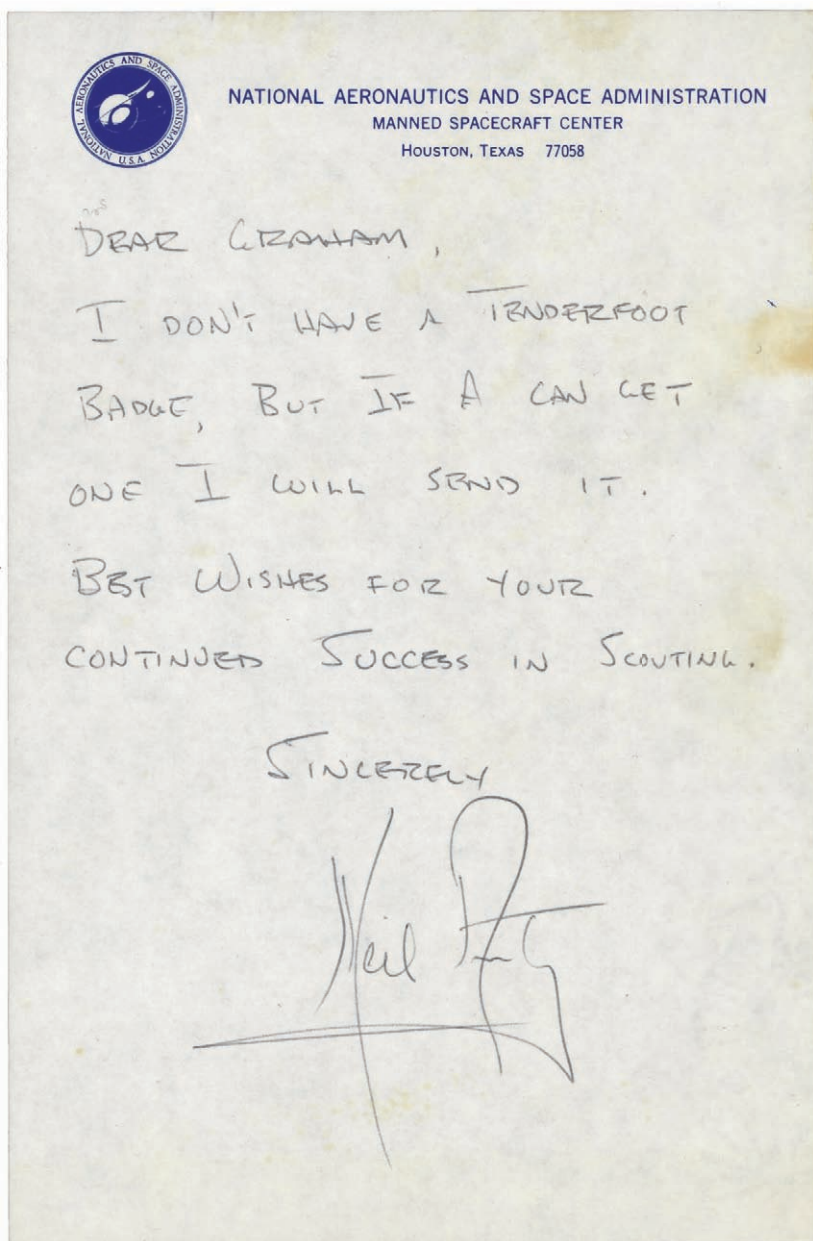 NATIONAL AERONAUTICS AND SPACE ADMINISTRATION U.S.A.
NATIONAL AERONAUTICS AND SPACE ADMINISTRATION
MANNED SPACECRAFT CENTER
HOUSTON, TEXAS 77058
DEAR GRAHAM,
I DON'T HAVE A TENDERFOOT
BADGE, BUT IF A CAN GET
ONE I WILL SEND IT.
BEST WISHES FOR YOUR
CONTINUED SUCCESS IN SCOUTING.
SINCERELY
Neil